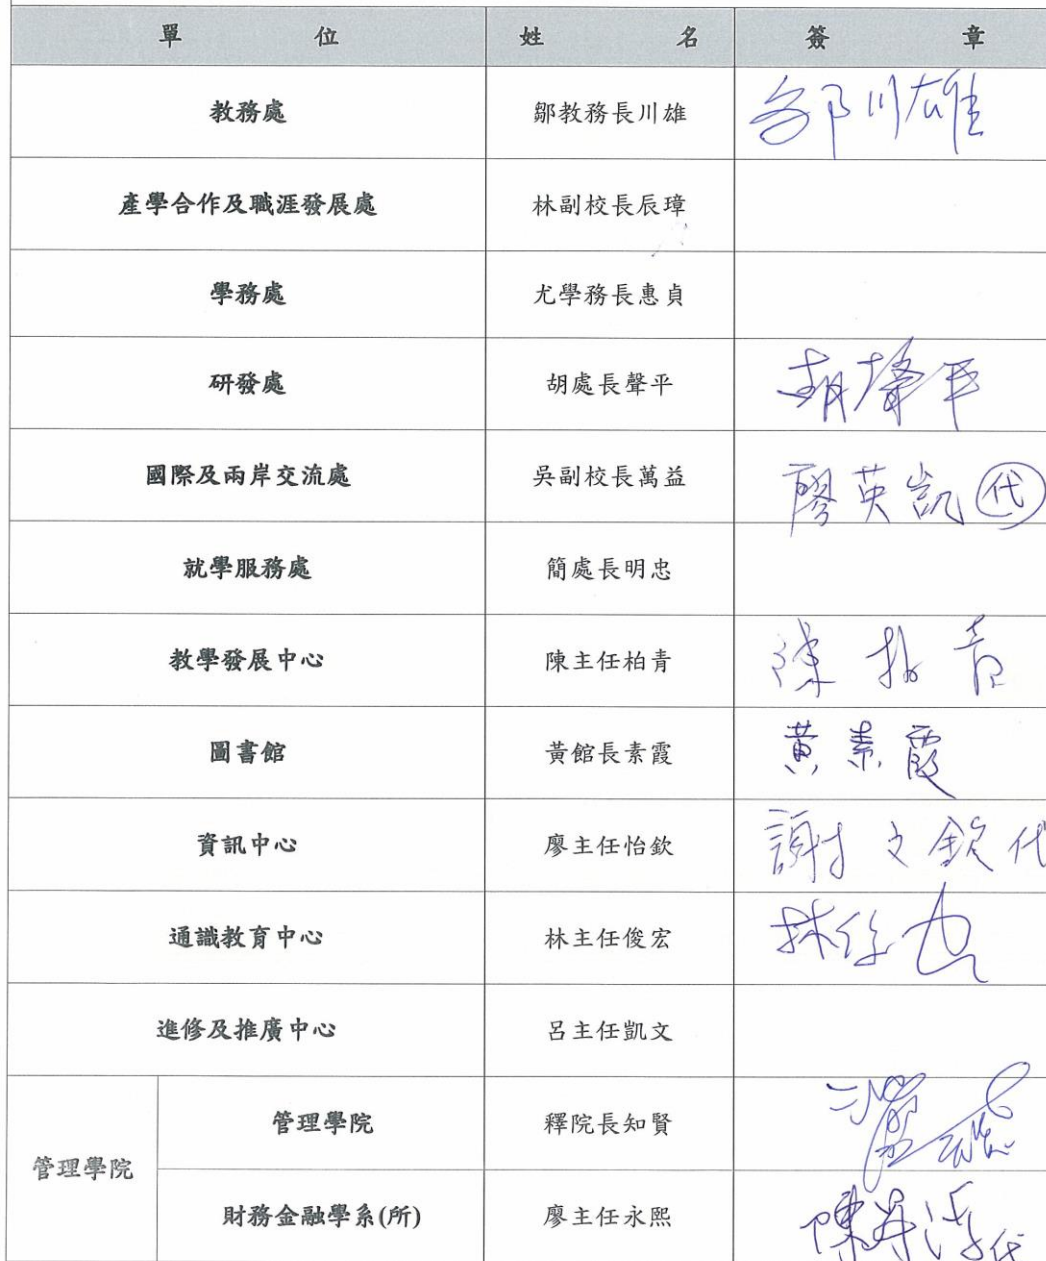 單 位 姓 名 簽 章
教務處 鄒教務長川雄 鄒川雄
產學合作及職涯發展處 林副校長辰璋
學務處 尤學務長惠貞
研發處 胡處長聲平 胡聲平
國際及兩岸交流處 吳副校長萬益 廖英凱代
就學服務處 簡處長明忠
教學發展中心 陳主任柏青 陳柏青
圖書館 黃館長素霞 黃素霞
資訊中心 廖主任怡欽 謝文欽代
通識教育中心 林主任俊宏 林俊宏
進修及推廣中心 呂主任凱文
管理學院 管理學院 釋院長知賢
財務金融學系(所) 廖主任永熙 陳昇鴻代